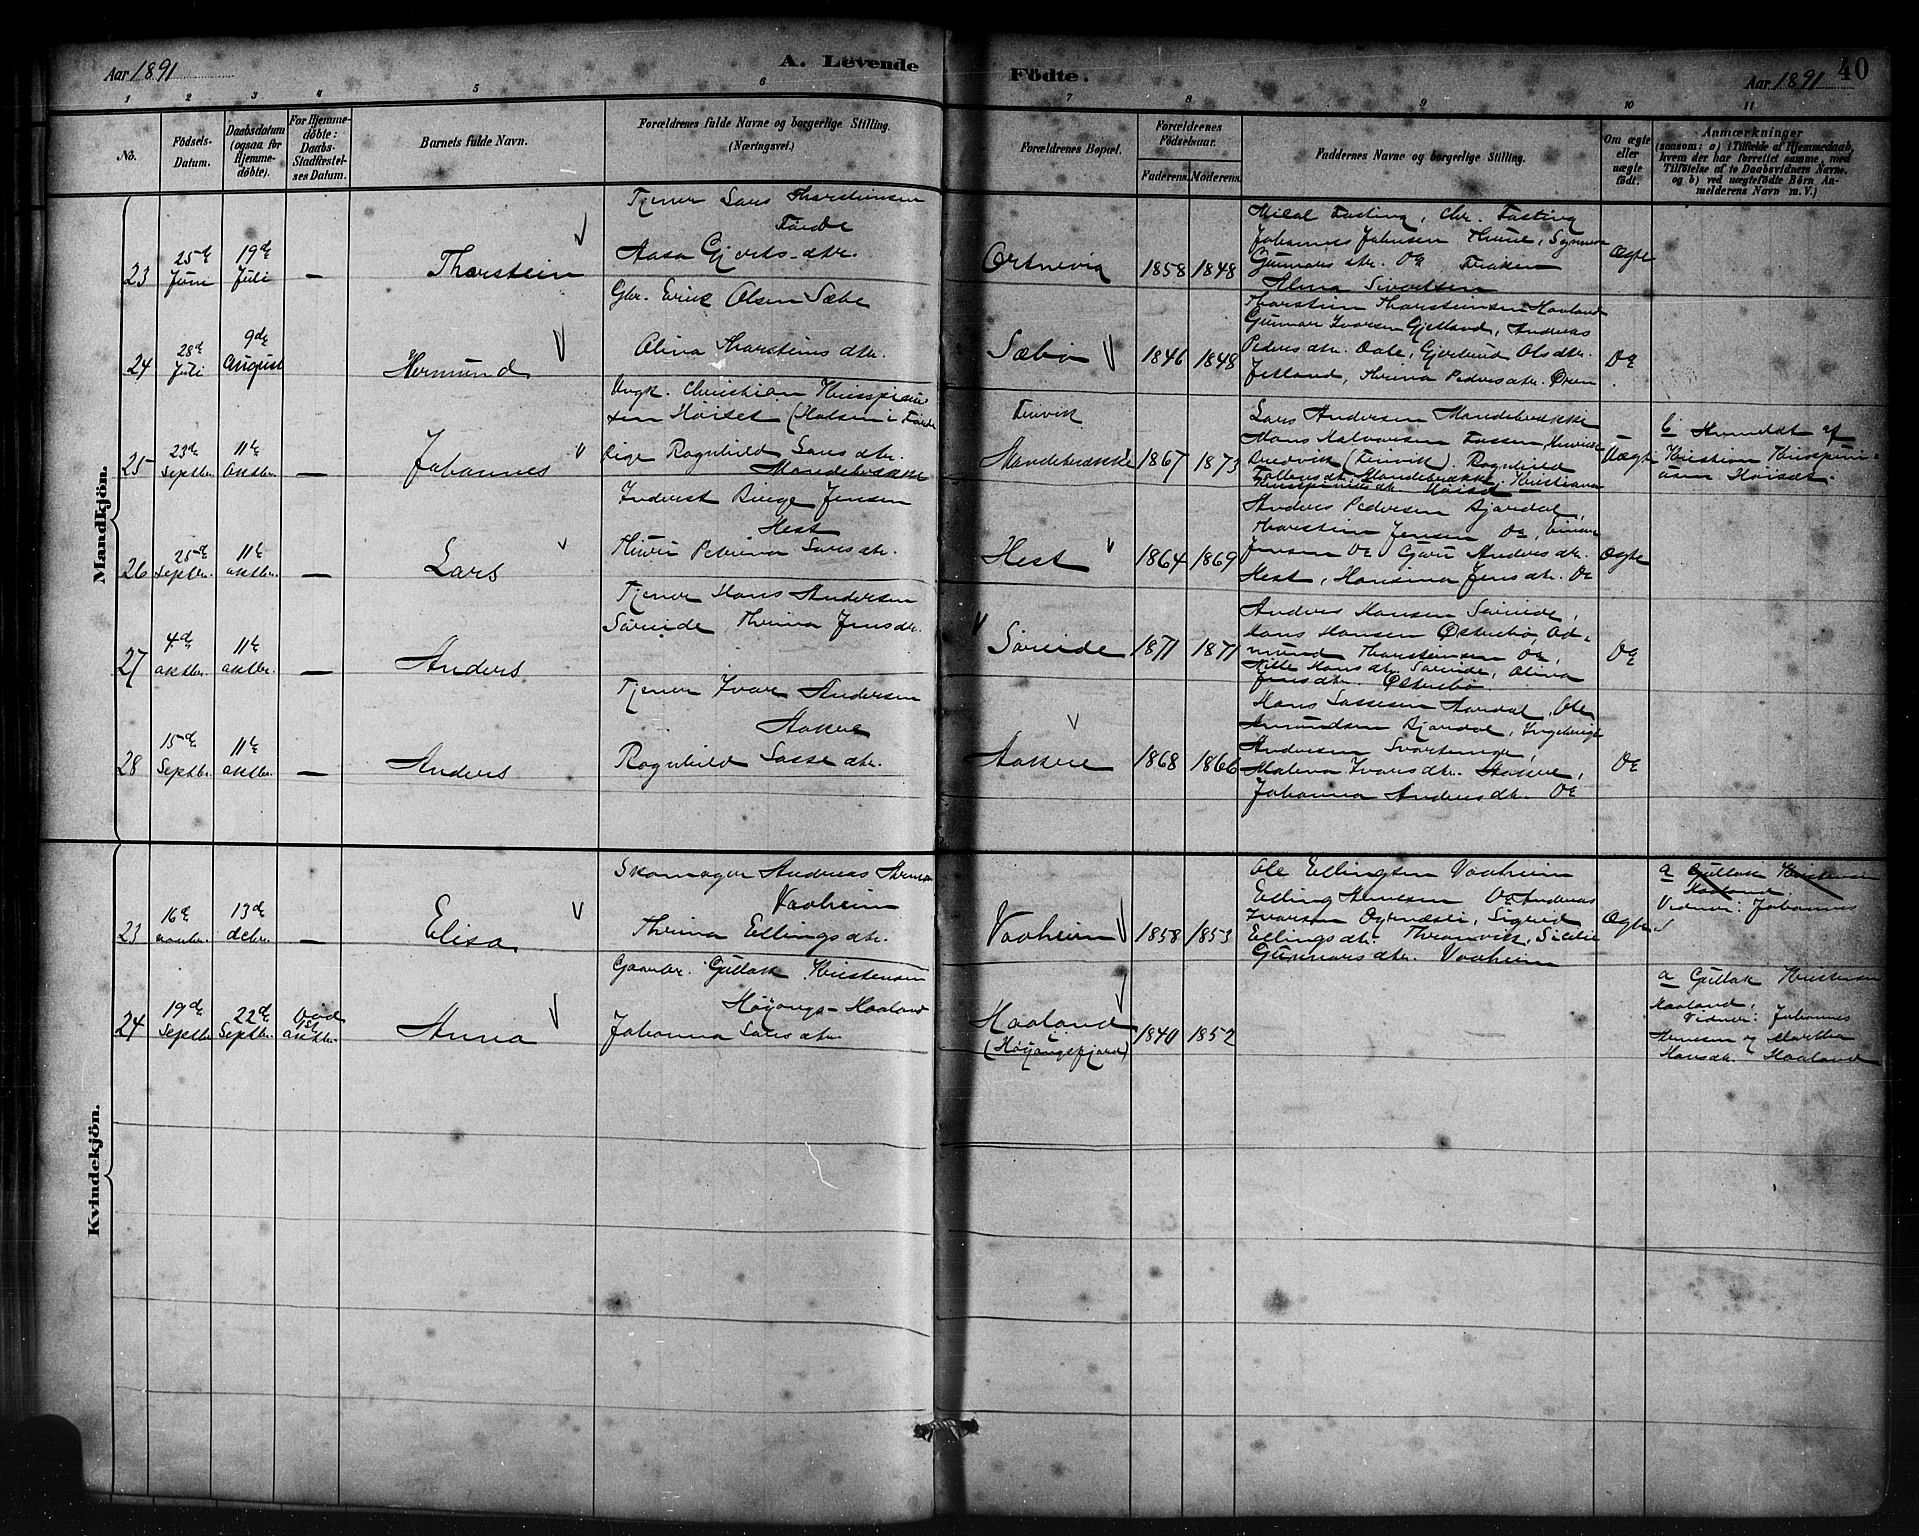 Aar 1891
A. Levende
Födte.
Aar 1891
40
1 2 3 4 5 6 7 8 9 10 11
No.
Födsels-
Datum.
Daabsdatum
(ogsaa for
Hjemme-
döbte).
For Hjemme-
döbte:
Daabs-
Stadfæstel-
ses Datum.
Barnets fulde Navn.
Forældrenes fulde Navne og borgerlige Stilling.
(Næringsvei.)
Forældrenes Bopæl.
Forældrenes
Födselsaar.
Faderens. Moderens.
Faddernes Navne og borgerlige Stilling.
Om ægte
eller
uægte
født.
Anmærkninger
(saasom: a) i Tilfælde af Hjemmedaab,
hvem der har forrettet samme, med
Tilföielse af to Daabsvidners Navne.
og b) ved uægtefödte Börn An-
melderens Navn m. V.)
Mandkjön.
23
25de
Juni
19de
Juli
—
Thorstein
Tjener Lars Thorsteinsen
Förde
Aasa Gjertsdtr.
Ortnevig
1858 1848
Fasting, Chr. Fasting
Johannes Johnsen
Gunnarsdtr.
Alma Sivertsen
Ægte
24
28de
Juli
9de
August
Hermund
Gbr. Erik Olsen Sæbø
Olina Thorsteinsdtr.
Sæbø
1846 1848
Thorstein Thorsteinsen Haaland
Gunnar Ivarsen Gjetland, Andreas
Pedersdtr. Dale, Gjertrud Olsdtr.
Jetland, Thrina Pedersdtr. Øren
Do
25
23de
Septbr.
11te
Oktbr.
—
Johannes
Ungk. Christian Krispinu-
sen Høiset (Holsen i Förde
Pige Ragnhild Larsdtr.
Mandebrække
Mandebrække
1867 1873
Lars Andersen Mandebrække
Hans Halvorsen
Ragnhild
Mandebrække, Kristiane
Høiset
Uægte
b Anmeldt af
Kristian Krispini-
usen Høiset.
26
25de
Septbr.
11te
Oktbr.
—
Lars
Inderst Birge Jensen
Hest
Petrina Larsdtr.
Hest
1864 1869
Anders Pedersen Bjordal,
Thorstein Jensen Do, Einar
Jensen Do Guri Andersdtr.
Hest, Hansina Jensdtr. Do
Ægte
27
4de
Oktbr.
11te
Oktbr.
—
Anders
Tjener Hans Andersen
Söreide Thrina Jensdtr.
Söreide
1871 1871
Anders Hansen Söreide,
Hans Hansen Østerbø, Od-
mund Thorsteinsen Do,
Hansdtr. Söreide, Olina
Jensdtr. Østerbø
Do
28
15de
Septbr.
11te
Oktbr.
—
Anders
Tjener Ivar Andersen
Aakre
Ragnhild Lassedtr.
Aakre
1868 1866
Hans Lassesen Aardal, Ole
Amundsen Bjordal, Ingebrigt
Andersen Svartemyr,
Malena Ivarsdtr. Aakre,
Johanna Andersdtr. Do
Do
Kvindekjön.
23
16de
Novbr.
13de
Debr.
—
Elisa
Skomager Andreas
Vadheim
Thrina Ellingsdtr.
Vadheim
1858 1853
Ole Ellingsen Vadheim
Elling Arnesen Do Andreas
Ivarsen, Sigrid
Ellingsdtr. Thronvik, Sicilie
Gunnarsdtr. Vadheim
Ægte
a Gullak Kristensen
Haaland.
Vidner: Johannes
24
19de
Septbr.
22de
Septbr.
1ste
Oktbr.
Anna
Gaardbr. Gullak Kristensen
Høyangs-Haaland
Johanna Larsdtr.
Haaland
(Høyangsfjord)
1840 1852
a Gullak Kristensen
Haaland,
Vidner: Johannes
Arnesen og Martha
Hansdtr. Haaland